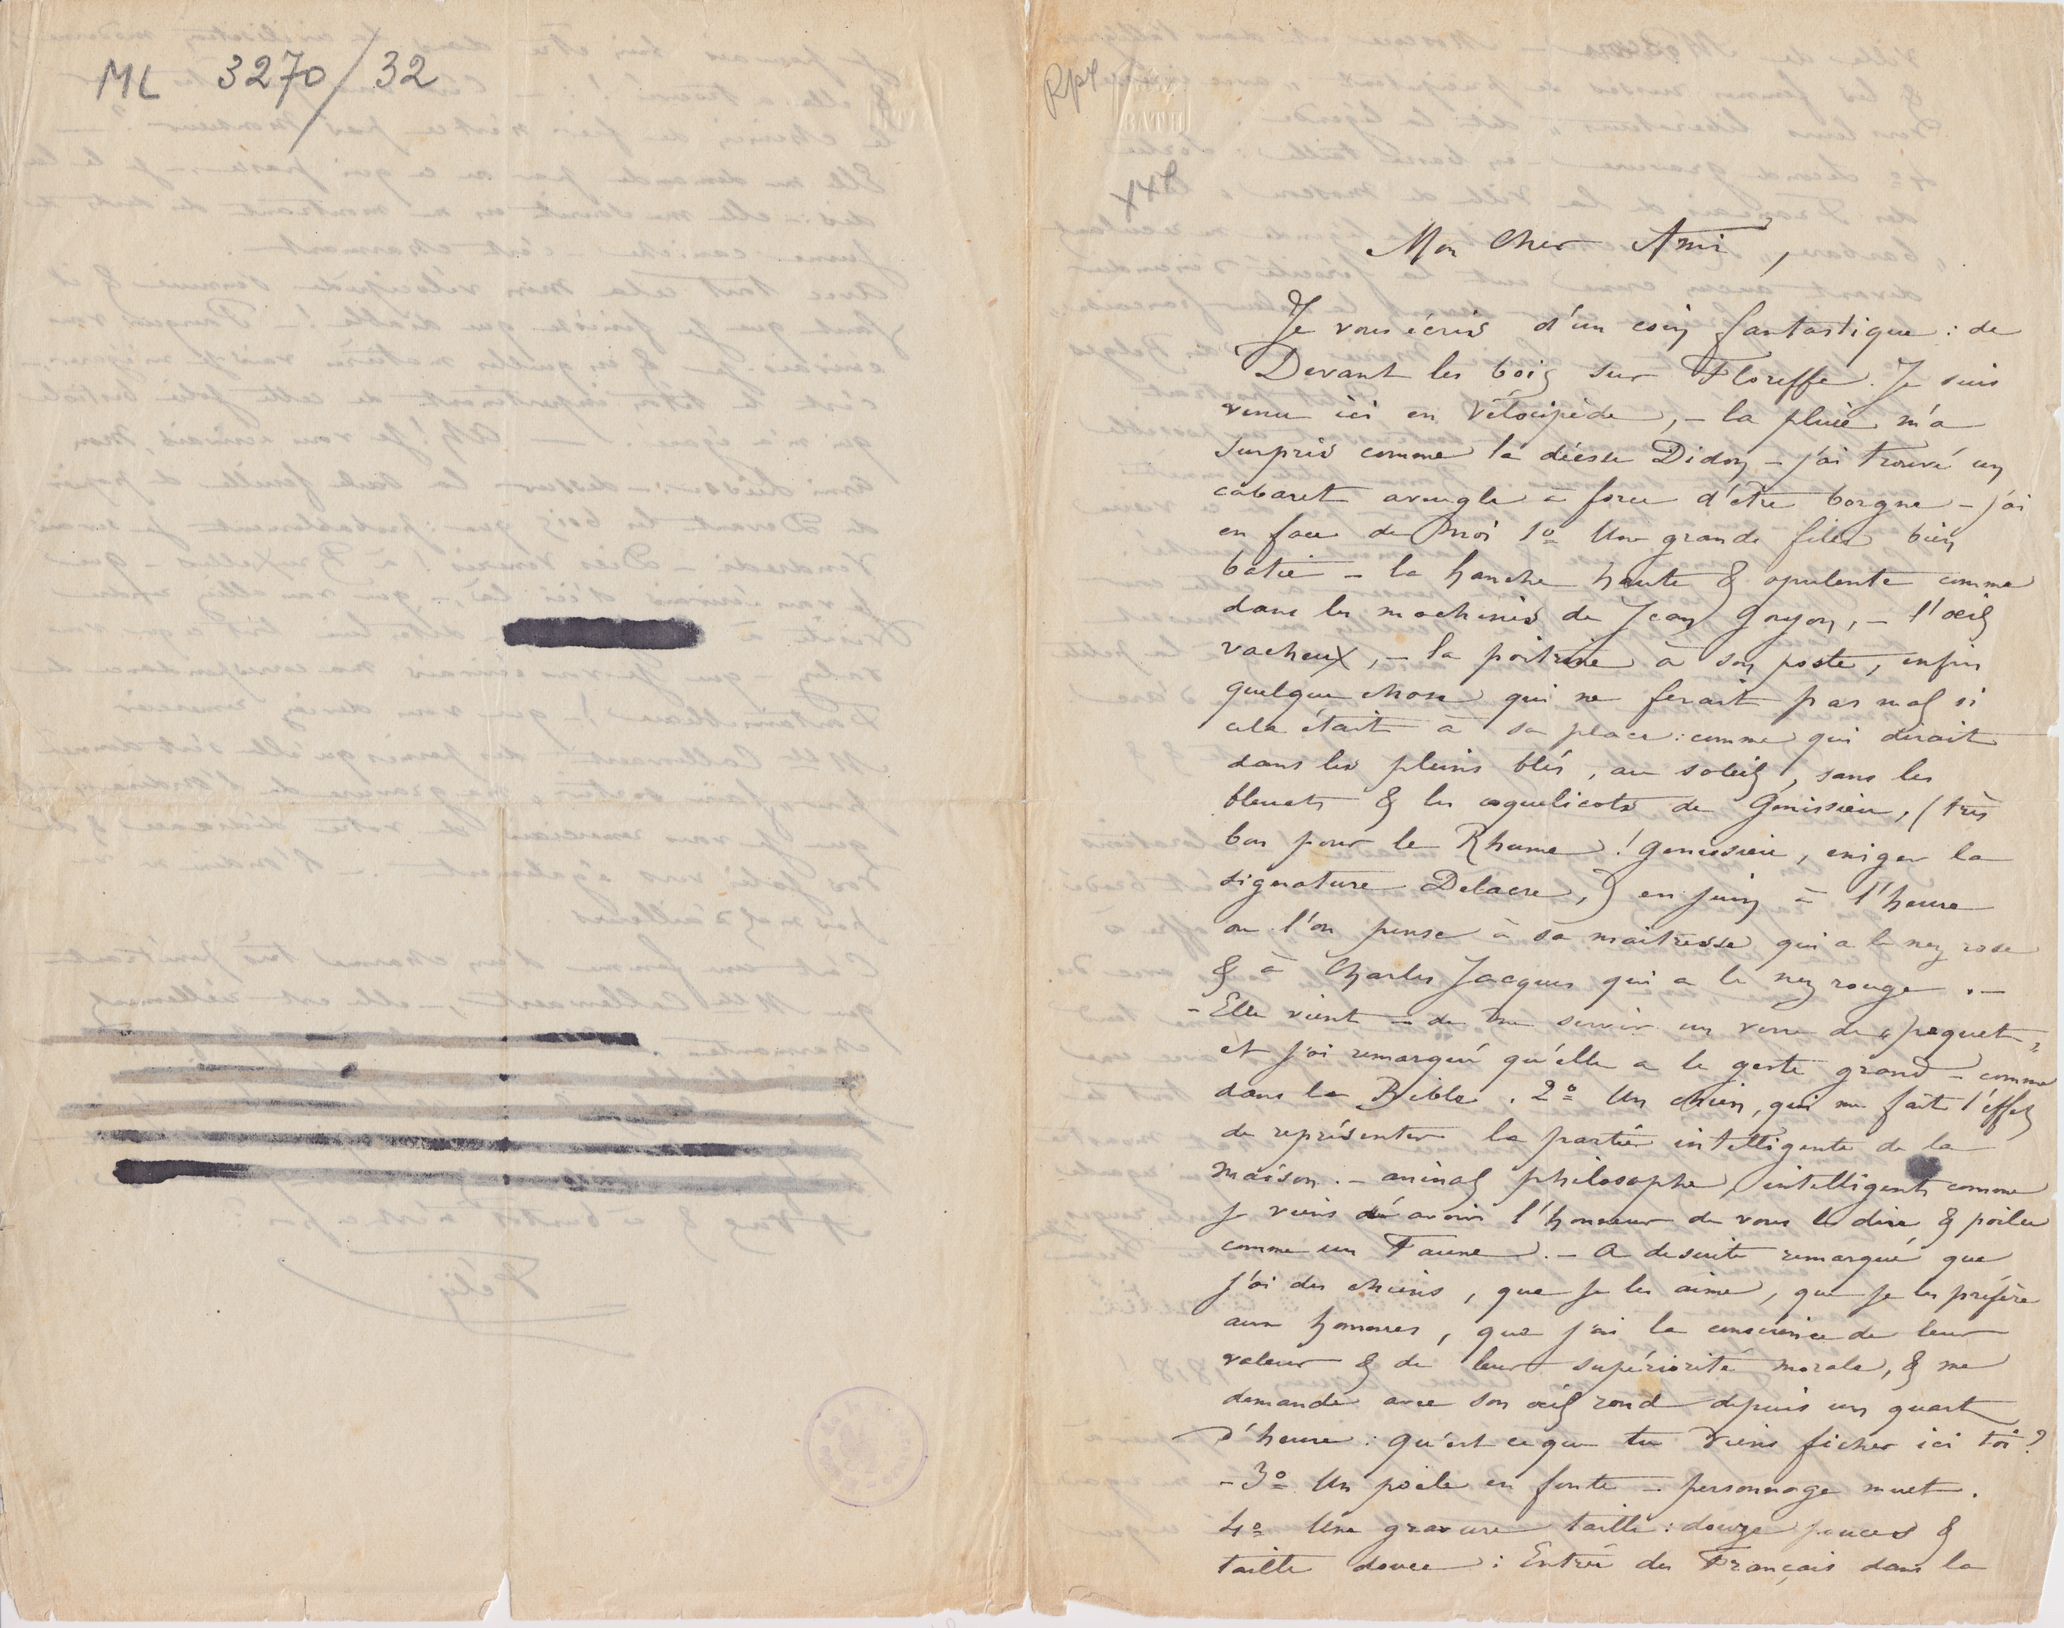 ML 3270/32
Rps
BATH
Mon Cher Ami,
Je vous écris d'un coin fantastique : de
Devant les bois sur Floreffe. Je suis
venu ici en vélocipède, – la pluie m'a
surpris comme la déesse Didon – j'ai trouvé un
cabaret aveugle à force d'être borgne – j'ai
en face de moi 1º Une grande fille bien
batie – la hanche haute & opulente comme
dans les machines de Jean Goujon, – l'œil
vacheux, – la poitrine à son poste, enfin
quelque chose qui ne ferait pas mal si
cela était à sa place : comme qui dirait
dans les pleins blés, au soleil, sans les
bleuets & les coquelicots de Génissieu, (très
bon pour le Rhume ! Genissieu, exiger la
signature Delacre,) en juin à l'heure
ou l'on pense à sa maitresse qui a le nez rose
& à Charles Jacques qui a le nez rouge . –
– Elle vient – de me servir un verre de « pequet »
et j'ai remarqué qu'elle a le geste grand – comme
dans la Bible . 2º Un chien, qui me fait l'effet
de représenter la partie intelligente de la
maison. – animal philosophe, intelligent comme
je viens d'avoir l'honneur de vous le dire & poilu
comme un Faune . – A de suite remarqué que
j'ai des chiens, que je les aime, que je les préfère
aux hommes, que j'ai la conscience de leur
valeur & de leur supériorité morale, & me
demande avec son œil rond depuis un quart
d'heure : qu'est ce que tu viens ficher ici toi ?
– 3º Un poële en fonte – personnage muet .
4º Une gravure taille : douze pouces &
taille douce : Entrée des Français dans la